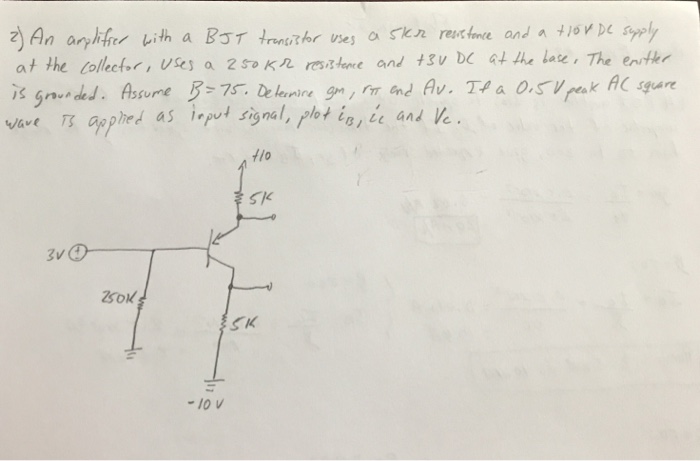 2) An amplifier with a BJT transistor uses a 5kΩ resistance and a +10V DC supply
at the collector, uses a 250KΩ resistance and +3V DC at the base. The emitter
is grounded. Assume B=75. Determine gm, rπ and Av. If a 0.5V peak AC square
wave is applied as input signal, plot iB, ic and Vc.
+10
5K
3V +
250K
5K
-10V